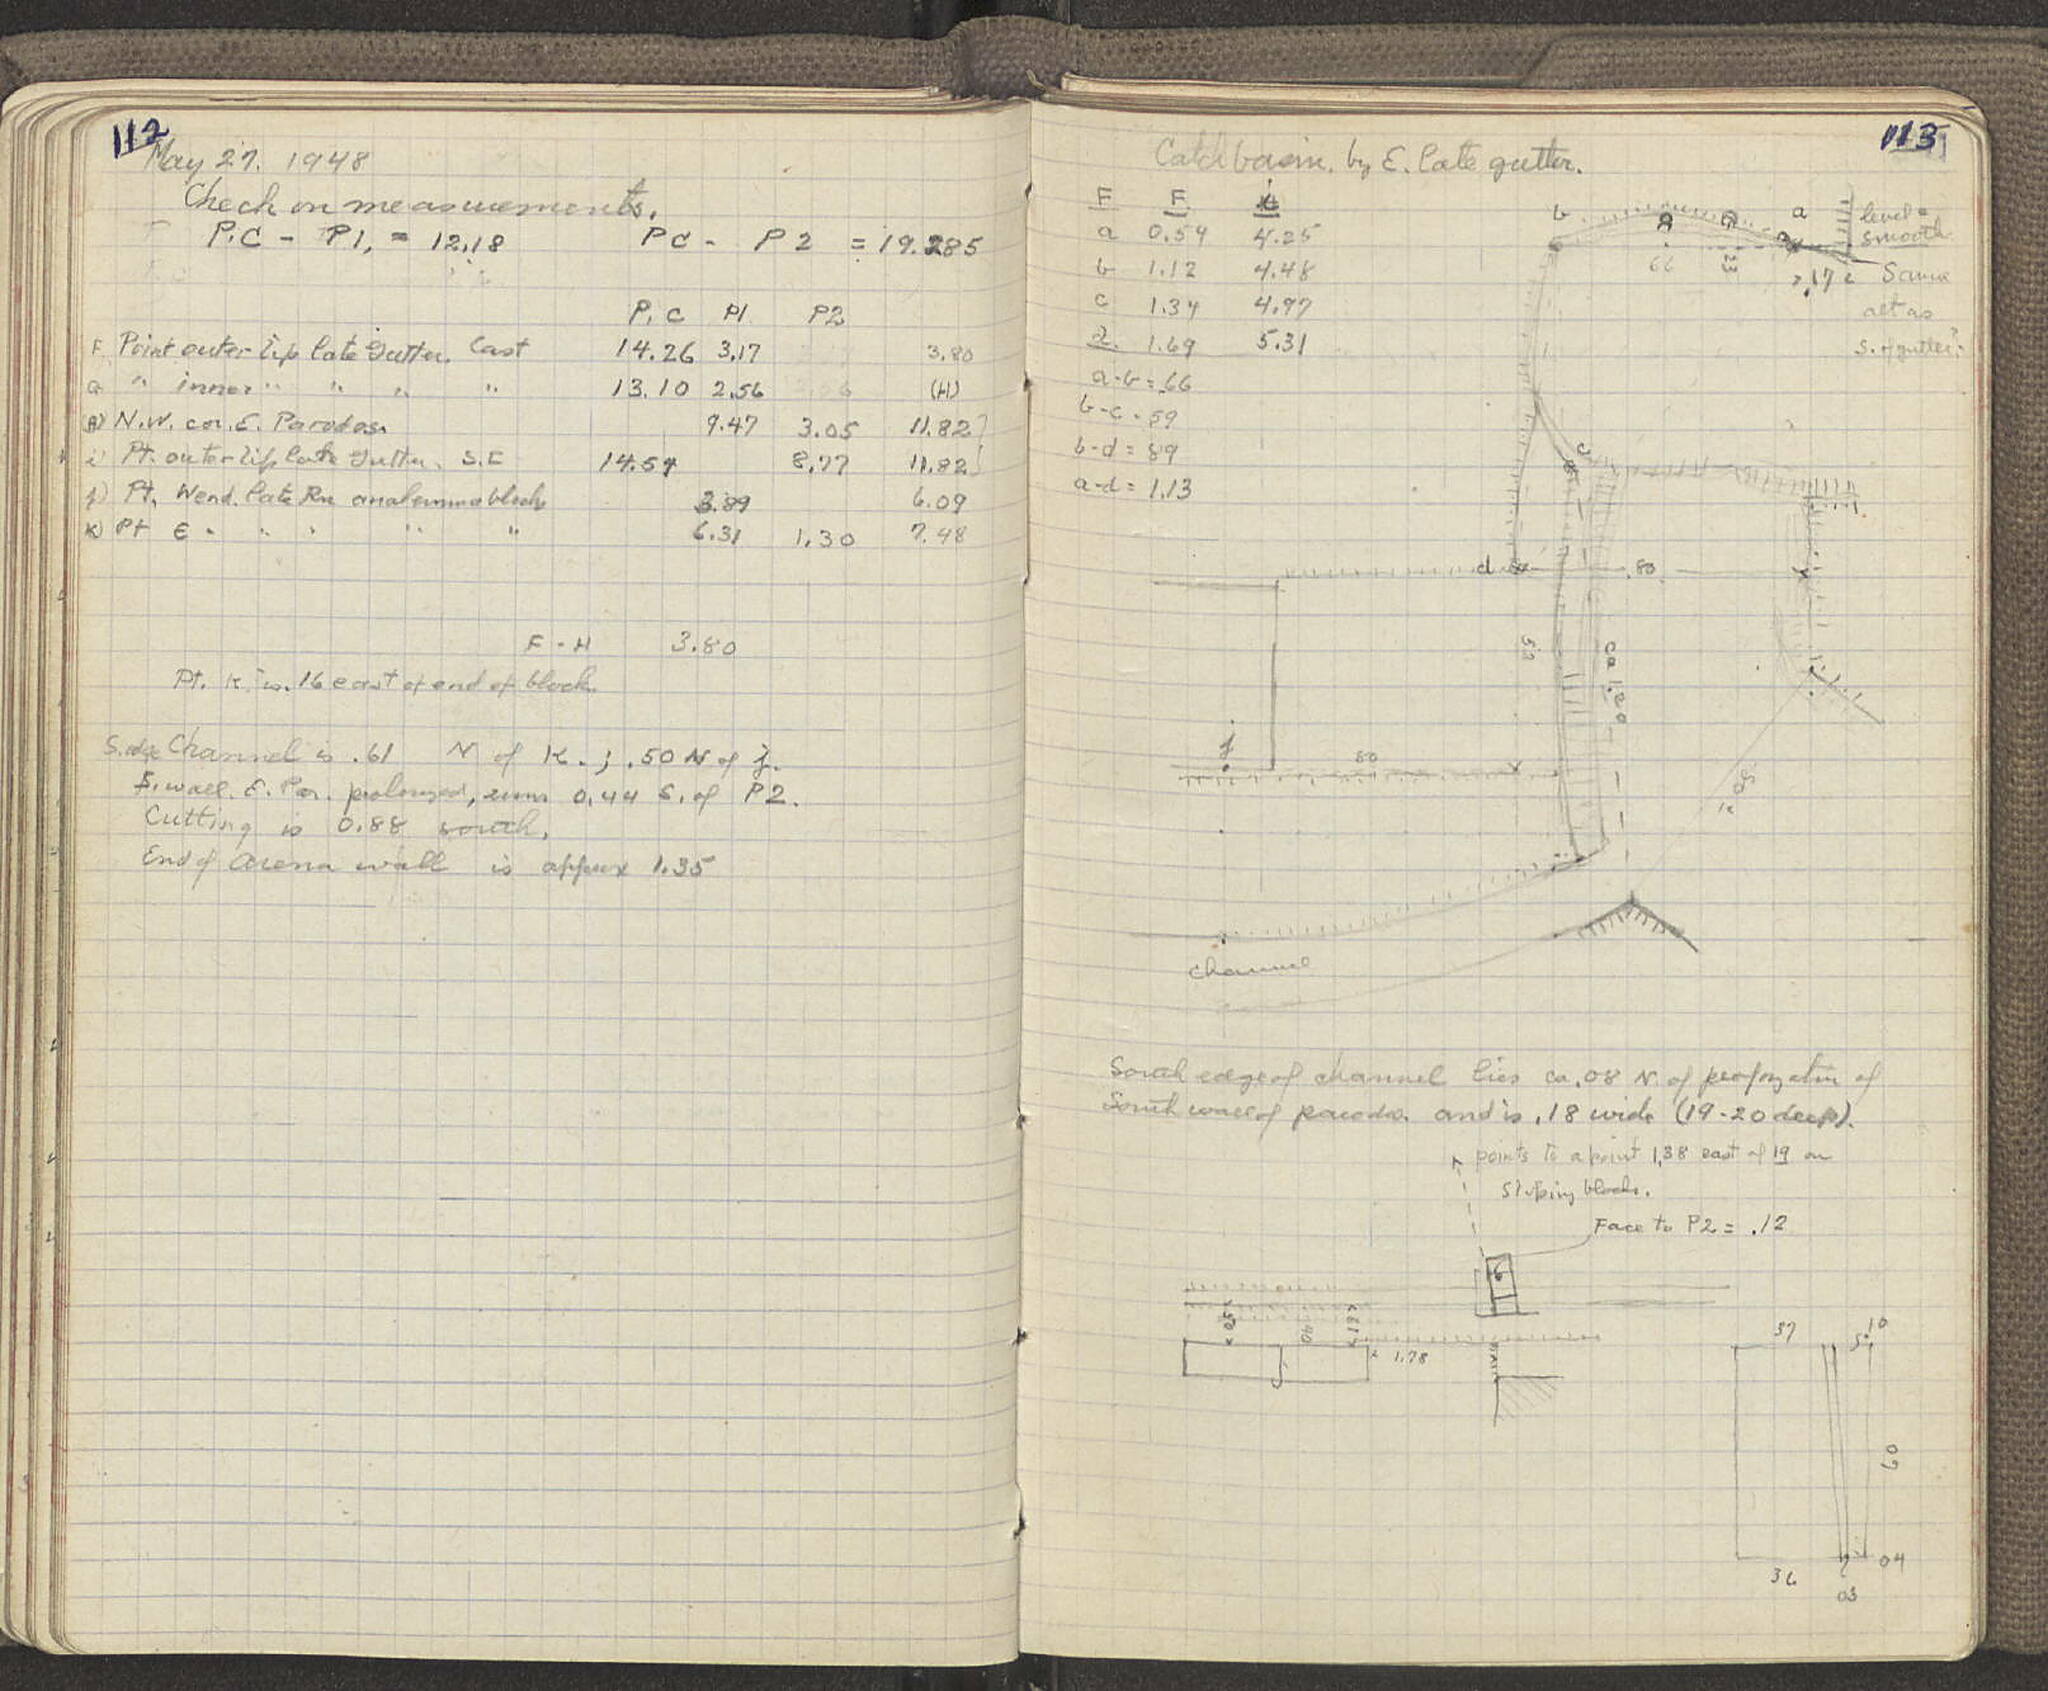 112
May 27. 1948
Check on measurements.
P.C - P1, = 12.18 PC - P2 = 19.285
P.C P1 P2
F Point outer lip late gutter. East 14.26 3.17 3.80
G " inner " " " " 13.10 2.56 (H)
H) N.W. cor. E. Parodos. 9.47 3.05 11.82
i) Pt. outer lip late gutter. S.E 14.57 8.77 11.82
j) Pt. W end. late Rn analemma block 3.89 6.09
K) Pt E " " " " " 6.31 1.30 7.48
F - H 3.80
Pt. K is .16 east of end of block.
S. edge Channel is .61 N of K. ; .50 N of j.
S. wall. E. Par. prolonged, runs 0.44 S. of P2.
Cutting is 0.88 south.
End of arena wall is approx 1.35
113
Catch basin. by E. late gutter.
F F
a 0.54 4.25
b 1.12 4.48
c 1.34 4.97
d. 1.69 5.31
a-b = .66
b-c = 59
b-d = 89
a-d = 1.13
b a
level =
smooth
66 23 .17
Same
alt as
S. of gutter?
c
d .80
53
ca 1.20
j
80
channel
South edge of channel lies ca .08 N. of prolongation of
South wall of parodos. and is .18 wide (19-20 deep).
points to a point 1.38 east of 19 on
sloping blocks.
Face to P2 = .12
.50 40 .61
1.78
37 5 10
60
36 03 04